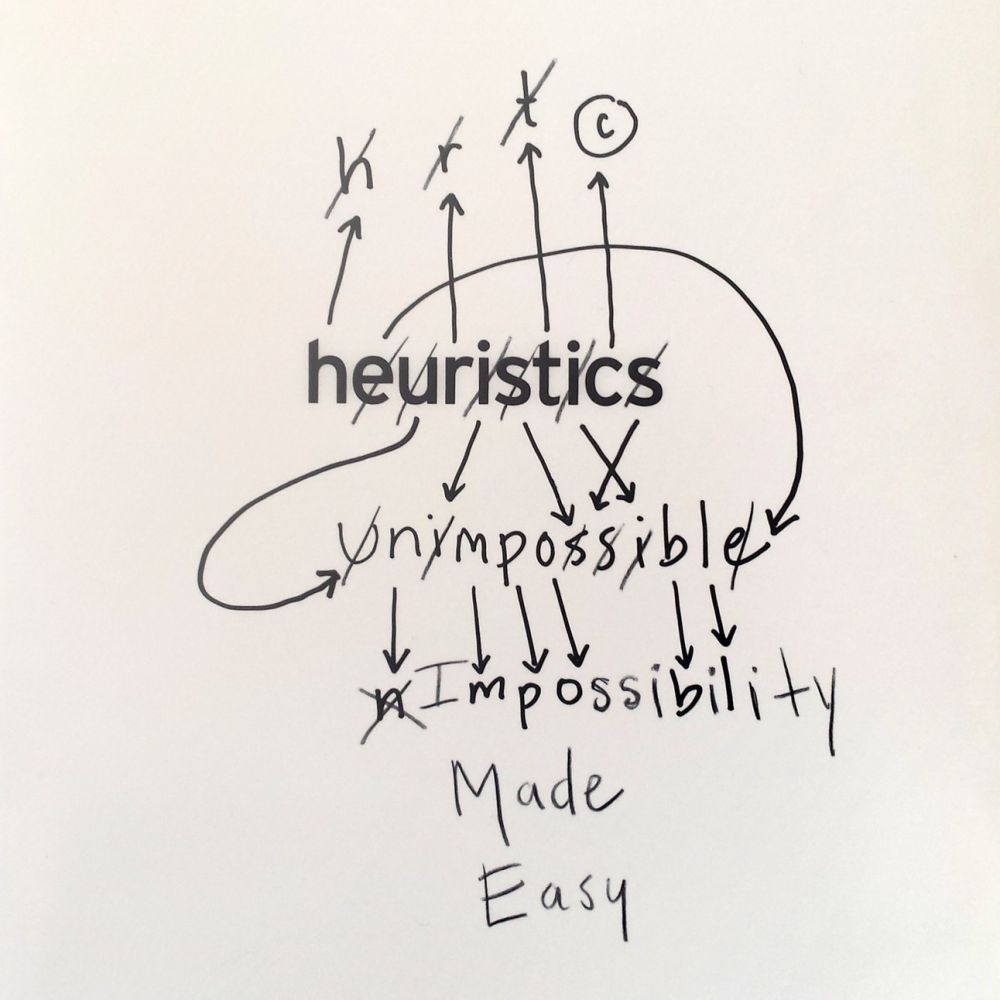 h r t c
heuristics
Unimpossible
n Impossibility
Made
Easy